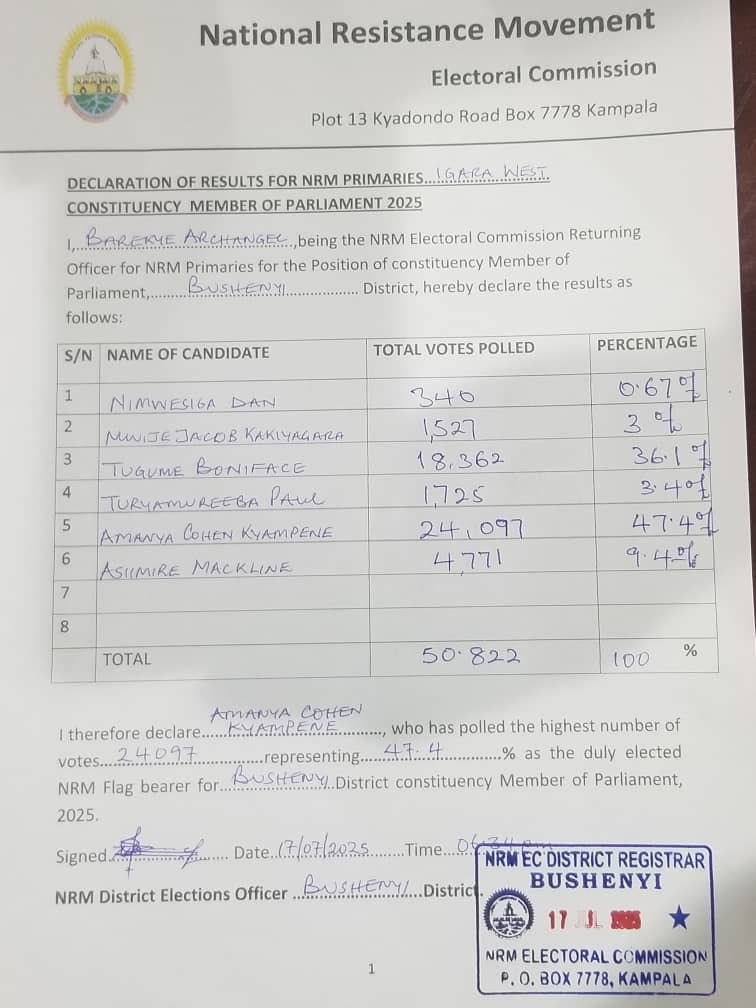 National Resistance Movement
Electoral Commission
Plot 13 Kyadondo Road Box 7778 Kampala
DECLARATION OF RESULTS FOR NRM PRIMARIES...IGARA WEST
CONSTITUENCY MEMBER OF PARLIAMENT 2025
I,..BAREKYE ARCHANGEL..,being the NRM Electoral Commission Returning
Officer for NRM Primaries for the Position of constituency Member of
Parliament,........BUSHENYI.................. District, hereby declare the results as
follows:
S/N NAME OF CANDIDATE TOTAL VOTES POLLED PERCENTAGE
1 NIMWESIGA DAN 340 0.67%
2 MWIJE JACOB KAKIYAGARA 1,527 3 %
3 TUGUME BONIFACE 18,362 36.1%
4 TURYAMUREEBA PAUL 1,725 3.4%
5 AMANYA COHEN KYAMPENE 24,097 47.4%
6 ASIIMIRE MACKLINE 4,771 9.4%
7
8
TOTAL 50.822 100 %
AMANYA COHEN
I therefore declare.....KYAMPENE..................., who has polled the highest number of
votes...24097....................representing.....47.4.............% as the duly elected
NRM Flag bearer for...BUSHENYI..District constituency Member of Parliament,
2025.
Signed................. Date..17/07/2025.......Time...06:34 am
NRM District Elections Officer ..BUSHENYI...District.
NRM EC DISTRICT REGISTRAR
BUSHENYI
17 JUL 2025
NRM ELECTORAL COMMISSION
P. O. BOX 7778, KAMPALA
1